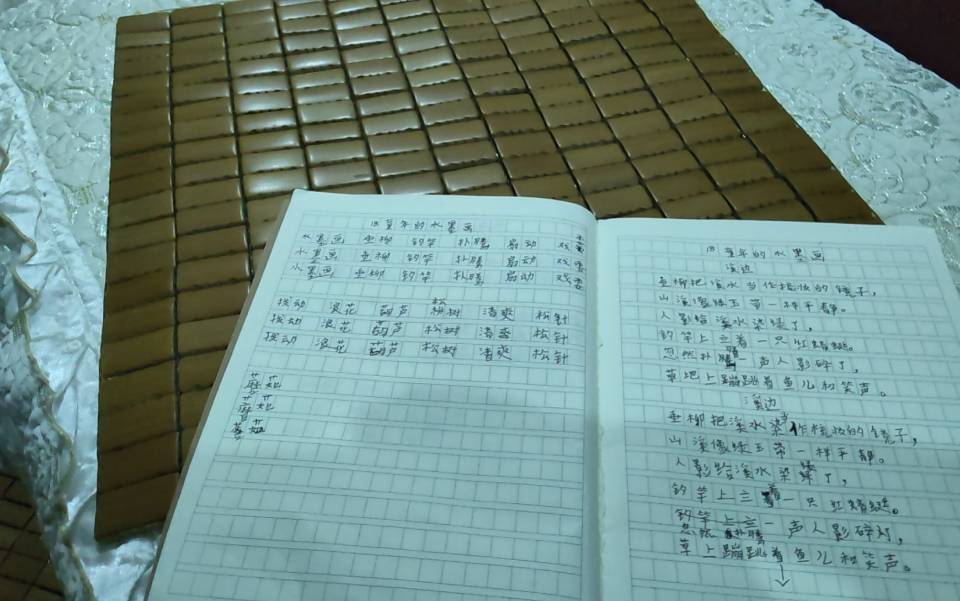 18童年的水墨画
水墨画 垂柳 钓竿 扑腾 扇动 戏耍
水墨画 垂柳 钓竿 扑腾 扇动 戏耍
水墨画 垂柳 钓竿 扑腾 扇动 戏耍
拨动 浪花 葫芦 松树 清爽 松针
拨动 浪花 葫芦 松树 清爽 松针
拨动 浪花 葫芦 松树 清爽 松针
蘑菇
蘑菇
蘑菇
18童年的水墨画
溪边
垂柳把溪水当作梳妆的镜子,
山溪像绿玉带一样平静。
人影给溪水染绿了,
钓竿上立着一只红蜻蜓。
忽然扑腾一声人影碎了,
草地上蹦跳着鱼儿和笑声。
溪边
垂柳把溪水 作梳妆的镜子,
山溪像绿玉带一样平静。
人影给溪水染绿了,
钓竿上立着一只红蜻蜓。
钓竿上立一声人影碎了,
忽然 扑腾
草上蹦跳着鱼儿和笑声。